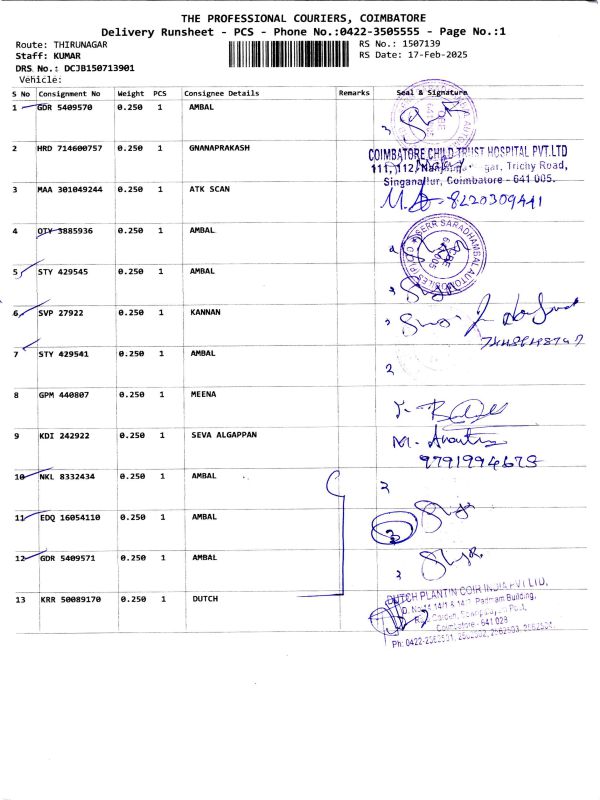 THE PROFESSIONAL COURIERS, COIMBATORE
Delivery Runsheet - PCS - Phone No.:0422-3505555 - Page No.:1
Route: THIRUNAGAR RS No.: 1507139
Staff: KUMAR RS Date: 17-Feb-2025
DRS No.: DCJB150713901
Vehicle:
S No Consignment No Weight PCS Consignee Details Remarks Seal & Signature
1 GDR 5409570 0.250 1 AMBAL
2 HRD 714600757 0.250 1 GNANAPRAKASH
COIMBATORE CHILD TRUST HOSPITAL PVT.LTD
111, 112, Trichy Road,
Singanallur, Coimbatore - 641 005.
3 MAA 301049244 0.250 1 ATK SCAN
8220309441
4 OTY 3885936 0.250 1 AMBAL
SERR SARADHAMBAL AUTOMOBILES (P)
CBE
641 005
5 STY 429545 0.250 1 AMBAL
6 SVP 27922 0.250 1 KANNAN
7 STY 429541 0.250 1 AMBAL
2
8 GPM 440807 0.250 1 MEENA
9 KDI 242922 0.250 1 SEVA ALGAPPAN
9791994673
10 NKL 8332434 0.250 1 AMBAL
11 EDQ 16054110 0.250 1 AMBAL
12 GDR 5409571 0.250 1 AMBAL
13 KRR 50089170 0.250 1 DUTCH
DUTCH PLANTIN COIR INDIA PVT LTD,
Padmam Building,
Coimbatore - 641 028
Ph: 0422-2562501, 2562502, 2562503, 2562504